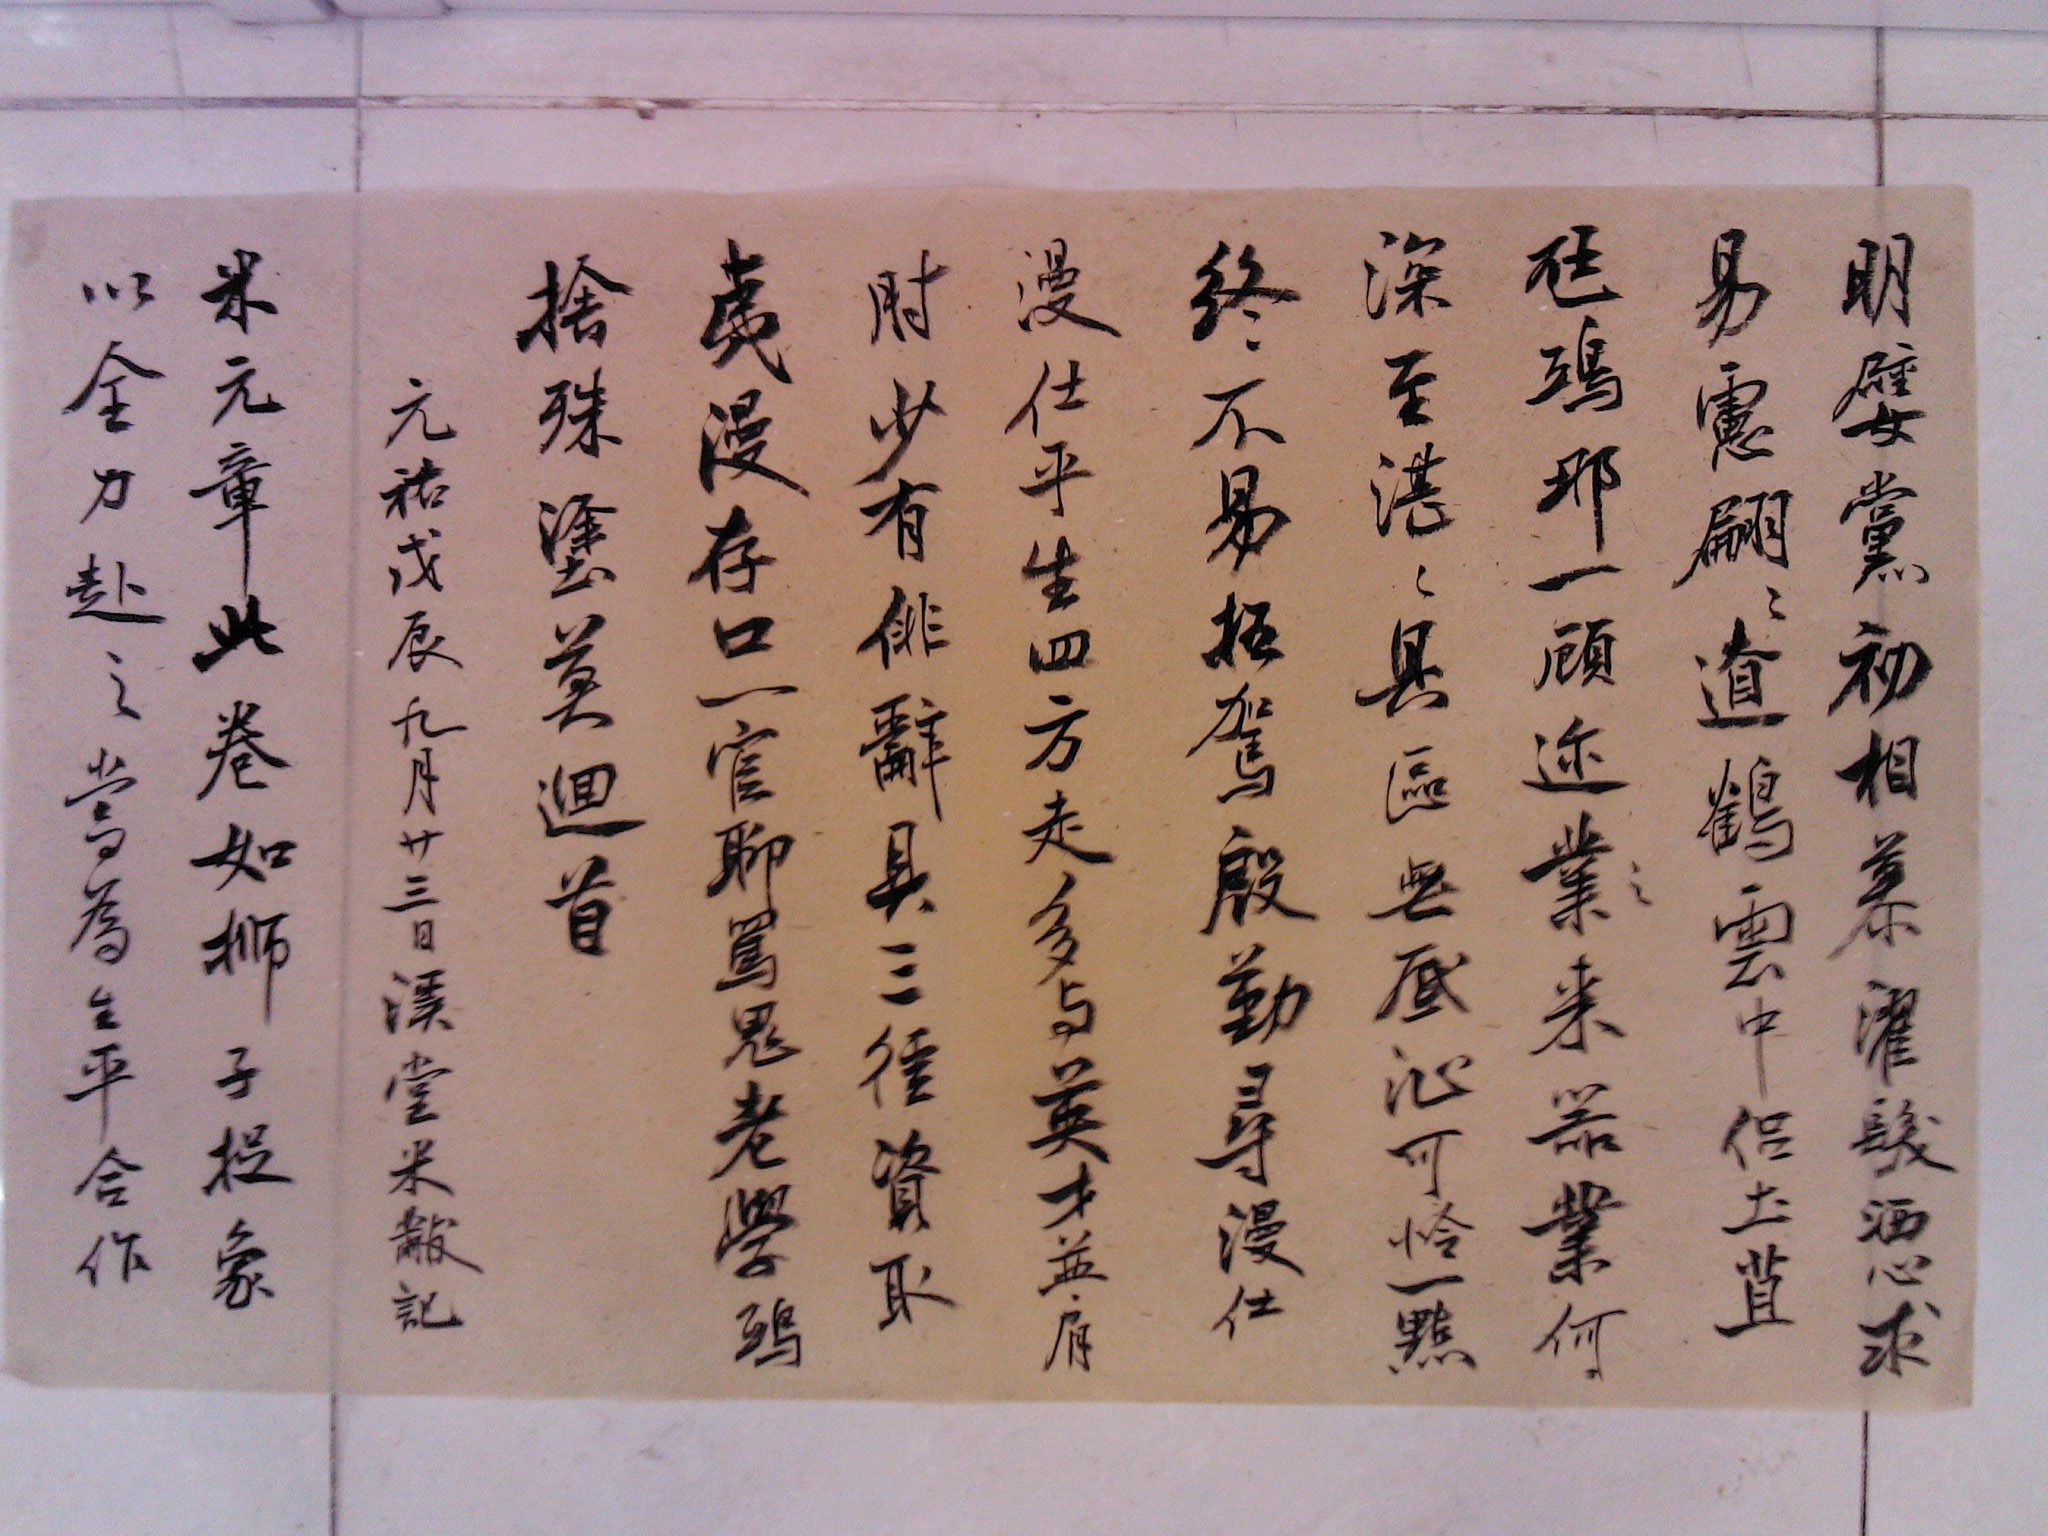 明嬖黨初相慕濯髮洒心求
易慮翩〻遼鶴雲中侶土苴
尪鴟那一顧迩業〻来器業何
深至湛〻具區無底沚可怜一點
終〻不易抂駕殷勤尋漫仕
漫仕平生四方走多与英才並肩
肘少有俳辭具三徑資取
夷漫存口一官聊罵鬼老學鴟
捨殊塗莫迴首
元祐戊辰九月廿三日溪堂米黻記
米元章此卷如狮子捉象
以全力赴之當為生平合作